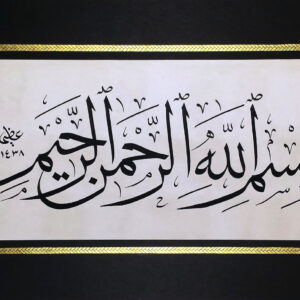 بسم الله الرحمن الرحيم
١٤٣٨